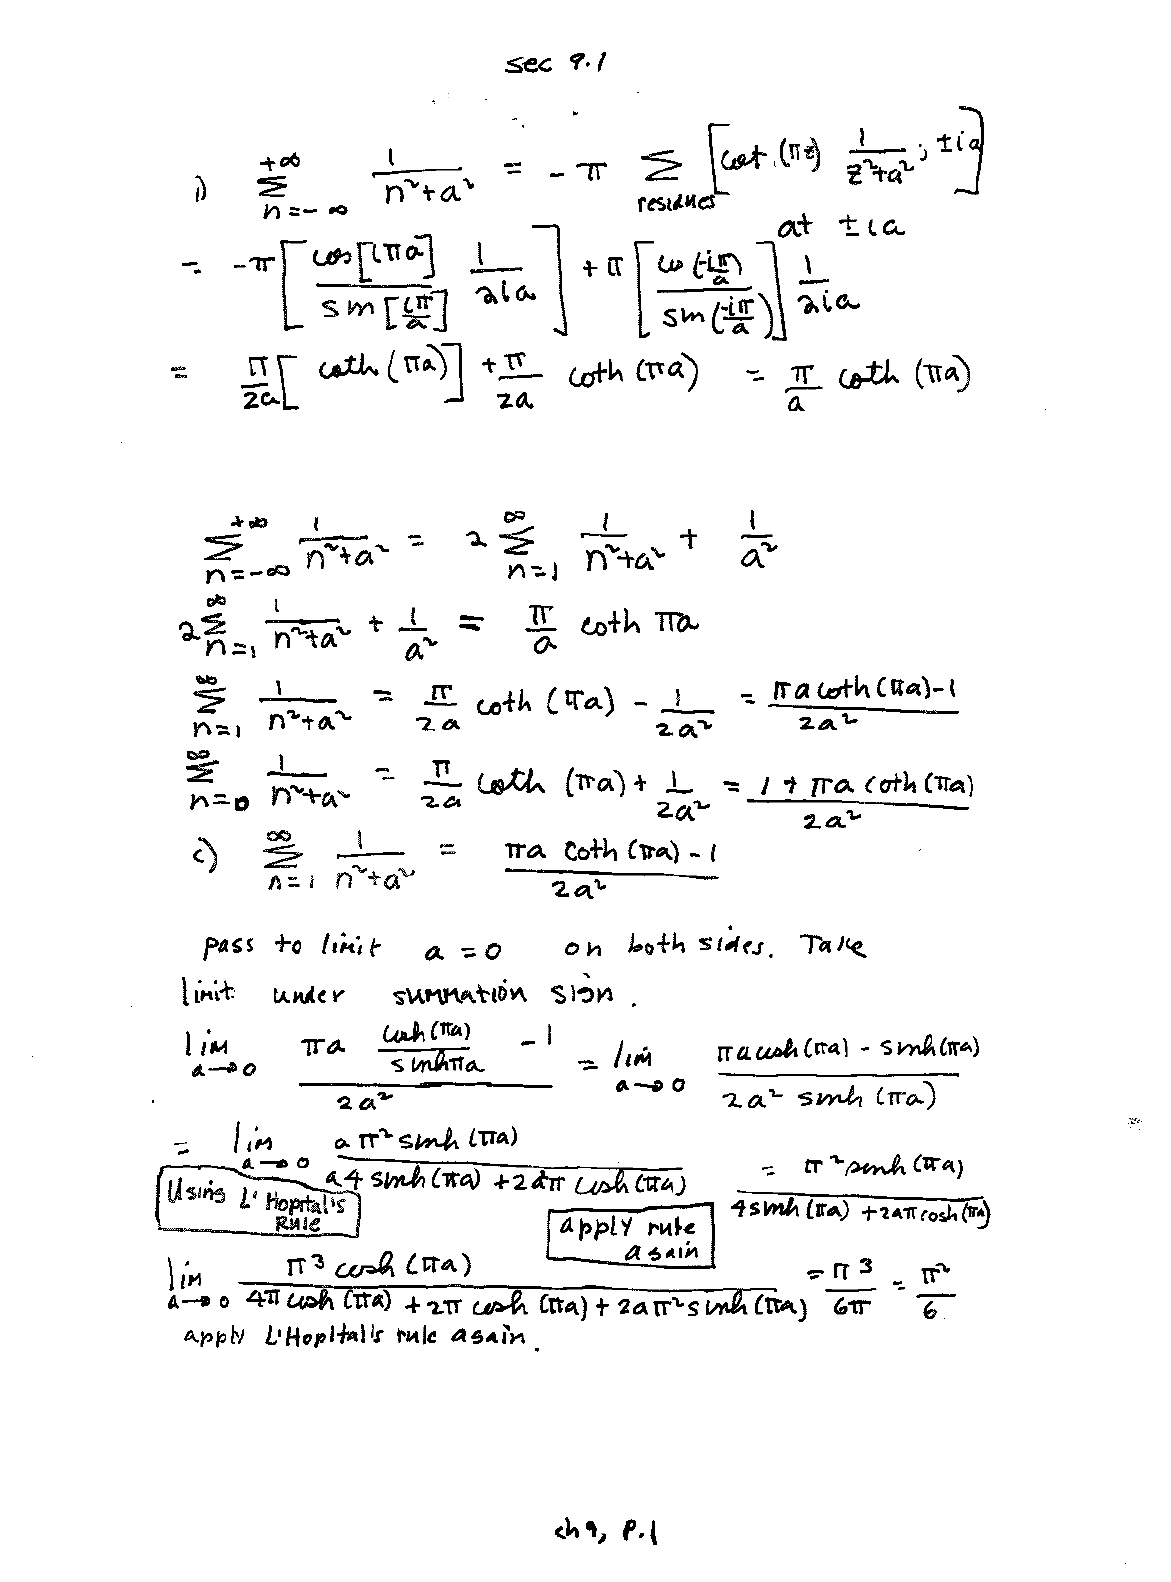 sec 9.1
1) \sum_{n=-\infty}^{+\infty} \frac{1}{n^2+a^2} = -\pi \sum_{residues} [cot (\pi z) \frac{1}{z^2+a^2}; \pm ia]
at \pm ia
= -\pi [\frac{cos[i\pi a]}{sin[\frac{i\pi}{a}]} \frac{1}{2ia}] + \pi [\frac{cos(\frac{-i\pi}{a})}{sin(\frac{-i\pi}{a})}] \frac{1}{2ia}
= \frac{\pi}{2a} [coth(\pi a)] + \frac{\pi}{2a} coth(\pi a) = \frac{\pi}{a} coth(\pi a)
\sum_{n=-\infty}^{+\infty} \frac{1}{n^2+a^2} = 2 \sum_{n=1}^{\infty} \frac{1}{n^2+a^2} + \frac{1}{a^2}
2 \sum_{n=1}^{\infty} \frac{1}{n^2+a^2} + \frac{1}{a^2} = \frac{\pi}{a} coth \pi a
\sum_{n=1}^{\infty} \frac{1}{n^2+a^2} = \frac{\pi}{2a} coth(\pi a) - \frac{1}{2a^2} = \frac{\pi a coth(\pi a)-1}{2a^2}
\sum_{n=0}^{\infty} \frac{1}{n^2+a^2} = \frac{\pi}{2a} coth(\pi a) + \frac{1}{2a^2} = \frac{1+\pi a coth(\pi a)}{2a^2}
c) \sum_{n=1}^{\infty} \frac{1}{n^2+a^2} = \frac{\pi a coth(\pi a)-1}{2a^2}
pass to limit a = 0 on both sides. Take
limit under summation sign.
lim_{a→0} \frac{\pi a \frac{cosh(\pi a)}{sinh \pi a} - 1}{2a^2} = lim_{a→0} \frac{\pi a cosh(\pi a) - sinh(\pi a)}{2a^2 sinh(\pi a)}
= lim_{a→0} \frac{a \pi^2 sinh(\pi a)}{a4 sinh(\pi a) + 2a^2\pi cosh(\pi a)} = \frac{\pi^2 sinh(\pi a)}{4 sinh(\pi a) + 2a\pi cosh(\pi a)}
Using L'Hopital's
Rule
apply rule
again
lim_{a→0} \frac{\pi^3 cosh(\pi a)}{4\pi cosh(\pi a) + 2\pi cosh(\pi a) + 2a\pi^2 sinh(\pi a)} = \frac{\pi^3}{6\pi} = \frac{\pi^2}{6}
apply L'Hopital's rule again.
ch 9, P.1